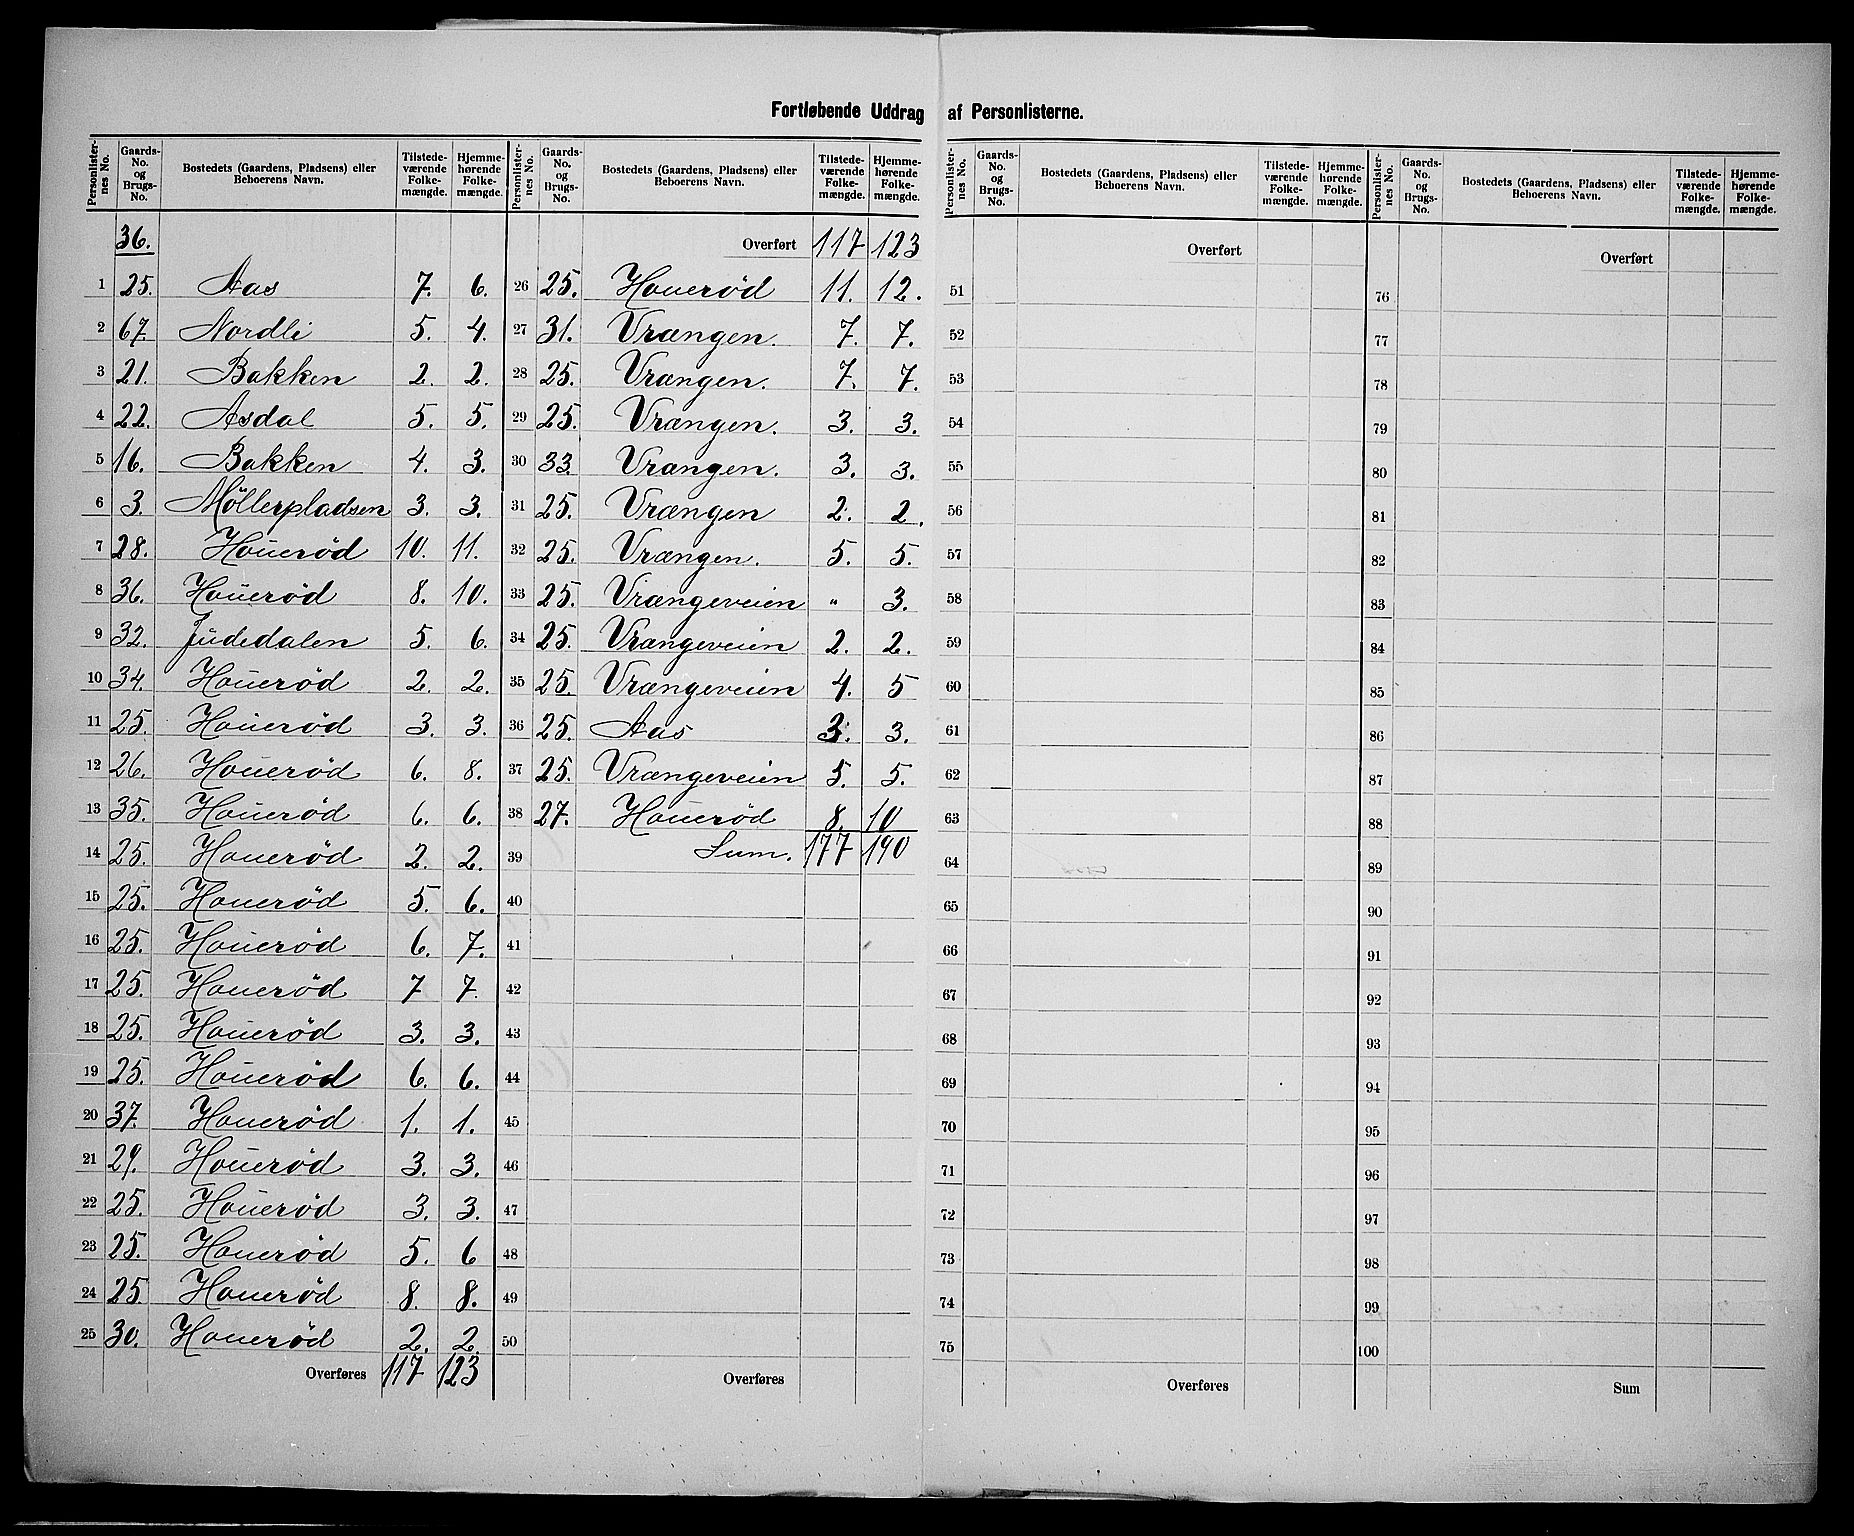 Fortløbende Uddrag af Personlisterne.
Personlister-nes No. | Gaards-No. og Brugs-No. | Bostedets (Gaardens, Pladsens) eller Beboerens Navn. | Tilstede-værende Folke-mængde. | Hjemme-hørende Folke-mængde.
36.
1 25. Aas 7. 6.
2 67. Nordli 5. 4.
3 21. Bakken 2. 2.
4 22. Asdal 5. 5.
5 16. Bakken 4. 3.
6 3. Møllerpladsen 3. 3.
7 28. Houerød 10. 11.
8 36. Houerød 8. 10.
9 32. Judedalen 5. 6.
10 34. Houerød 2. 2.
11 25. Houerød 3. 3.
12 26. Houerød 6. 8.
13 35. Houerød 6. 6.
14 25. Houerød 2. 2.
15 25. Houerød 5. 6.
16 25. Houerød 6. 7.
17 25. Houerød 7 7.
18 25. Houerød 3. 3.
19 25. Houerød 6. 6.
20 37. Houerød 1. 1.
21 29. Houerød 3. 3.
22 25. Houerød 3. 3.
23 25. Houerød 5. 6
24 25. Houerød 8. 8.
25 30. Houerød 2. 2.
Overføres 117 123
Personlister-nes No. | Gaards-No. og Brugs-No. | Bostedets (Gaardens, Pladsens) eller Beboerens Navn. | Tilstede-værende Folke-mængde. | Hjemme-hørende Folke-mængde.
Overført 117 123
26 25. Houerød 11. 12.
27 31. Vrængen. 7. 7.
28 25. Vrængen. 7. 7.
29 25. Vrængen. 3. 3.
30 33. Vrængen. 3. 3.
31 25. Vrængen 2. 2.
32 25. Vrængen. 5. 5.
33 25. Vrængeveien " 3.
34 25. Vrængeveien 2. 2.
35 25. Vrængeveien 4. 5
36 25. Aas 3. 3.
37 25. Vrængeveien 5. 5.
38 27. Houerød 8. 10
39 Sum. 177 190
40
41
42
43
44
45
46
47
48
49
50
Overføres
Personlister-nes No. | Gaards-No. og Brugs-No. | Bostedets (Gaardens, Pladsens) eller Beboerens Navn. | Tilstede-værende Folke-mængde. | Hjemme-hørende Folke-mængde.
Overført
51
52
53
54
55
56
57
58
59
60
61
62
63
64
65
66
67
68
69
70
71
72
73
74
75
Overføres
Personlister-nes No. | Gaards-No. og Brugs-No. | Bostedets (Gaardens, Pladsens) eller Beboerens Navn. | Tilstede-værende Folke-mængde. | Hjemme-hørende Folke-mængde.
Overført
76
77
78
79
80
81
82
83
84
85
86
87
88
89
90
91
92
93
94
95
96
97
98
99
100
Sum